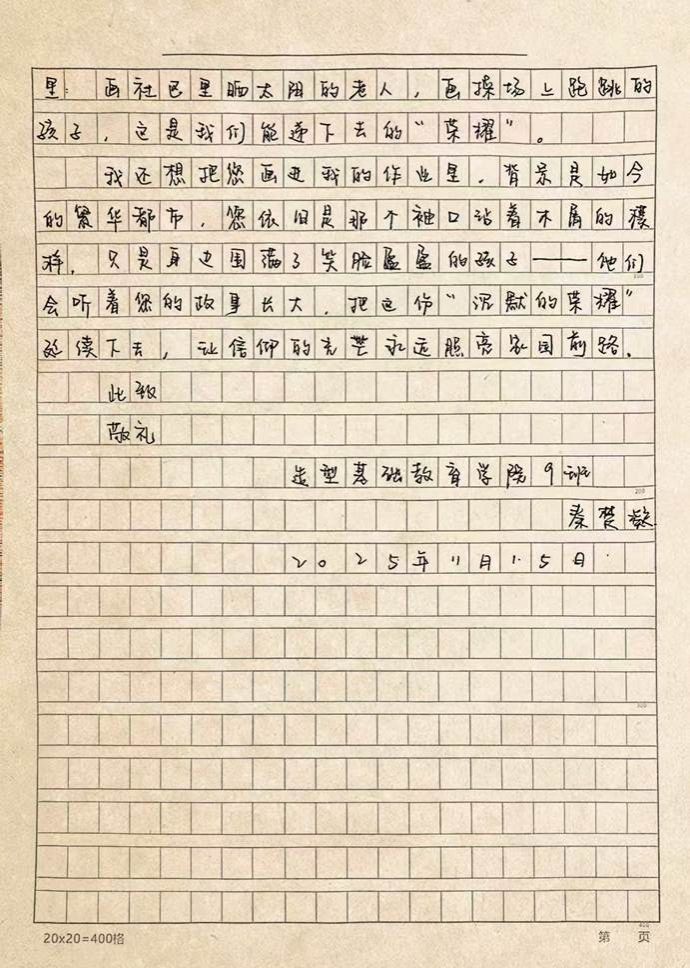 里：画社区里晒太阳的老人，画操场上跑跳的
孩子，这是我们能递下去的“荣耀”。
我还想把您画进我的作业里，背景是如今
的繁华都市，您依旧是那个袖口沾着木屑的模
样，只是身边围满了笑脸盈盈的孩子——他们
200
会听着您的故事长大，把这份“沉默的荣耀”
延续下去，让信仰的光芒永远照亮家国前路。
此致
敬礼
造型基础教育学院9班
200
秦楚
2025年11月15日
300
400
20x20=400格
第 页